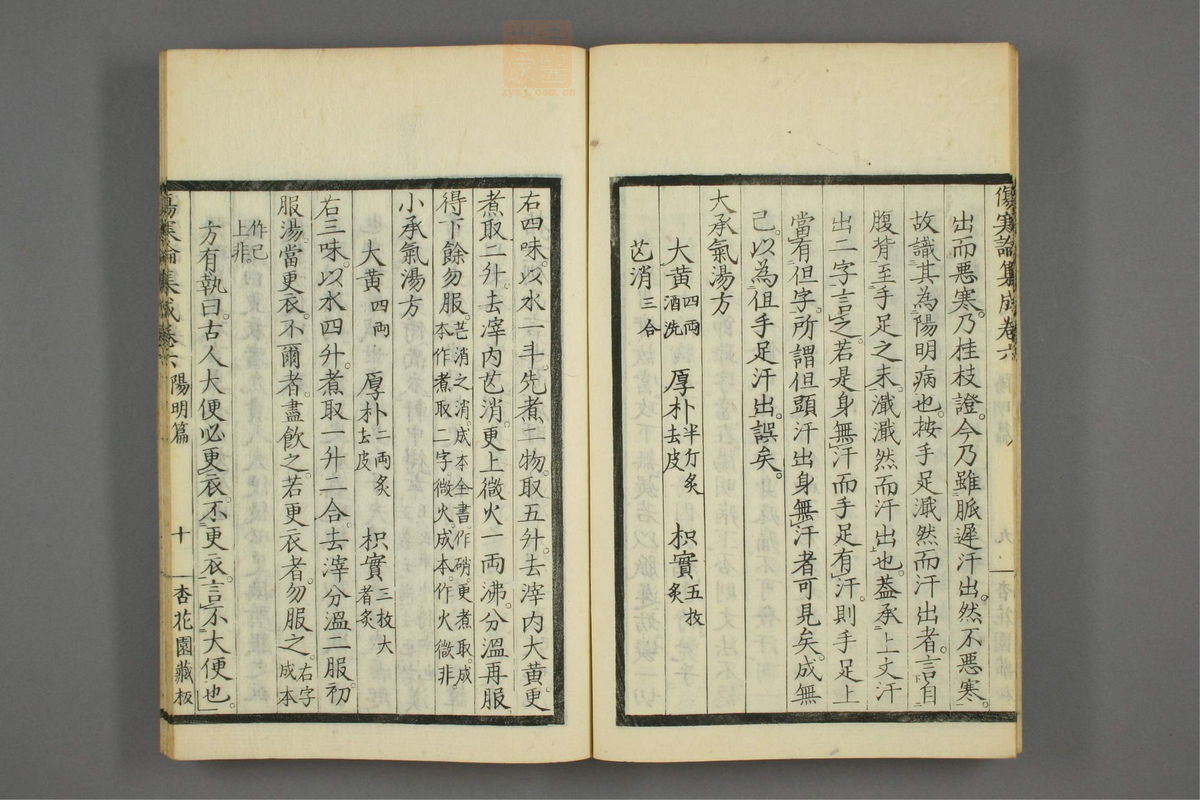 傷寒論集成卷六
出而惡寒。乃桂枝證。今乃雖脈遲汗出。然不惡寒。
故識其為陽明病也。按手足濈然而汗出者。言自
腹背至手足之末。濈濈然而汗出也。蓋承上文汗
出二字言之。若是身無汗而手足有汗。則手足上
當有但字。所謂但頭汗出身無汗者可見矣。成無
己。以為但手足汗出。誤矣。
大承氣湯方
大黃四兩酒洗 厚朴半斤炙去皮 枳實五枚炙
芒消三合
右四味。以水一斗。先煮二物。取五升。去滓內大黃。更
煮取二升。去滓內芒消。更上微火一兩沸。分溫再服
得下餘勿服。芒消之消。成本全書作硝。更煮取。成本作煮取二字微火。成本。作火微非
小承氣湯方
大黃四兩 厚朴二兩炙去皮 枳實三枚大者炙
右三味。以水四升。煮取一升二合去滓分溫二服。初
服湯當更衣。不爾者。盡飲之。若更衣者。勿服之。右字成本
作已上非
方有執曰。古人大便必更衣。不更衣。言不大便也。
傷寒論集成卷六 陽明篇 十 杏花園藏板
zysj.com.cn